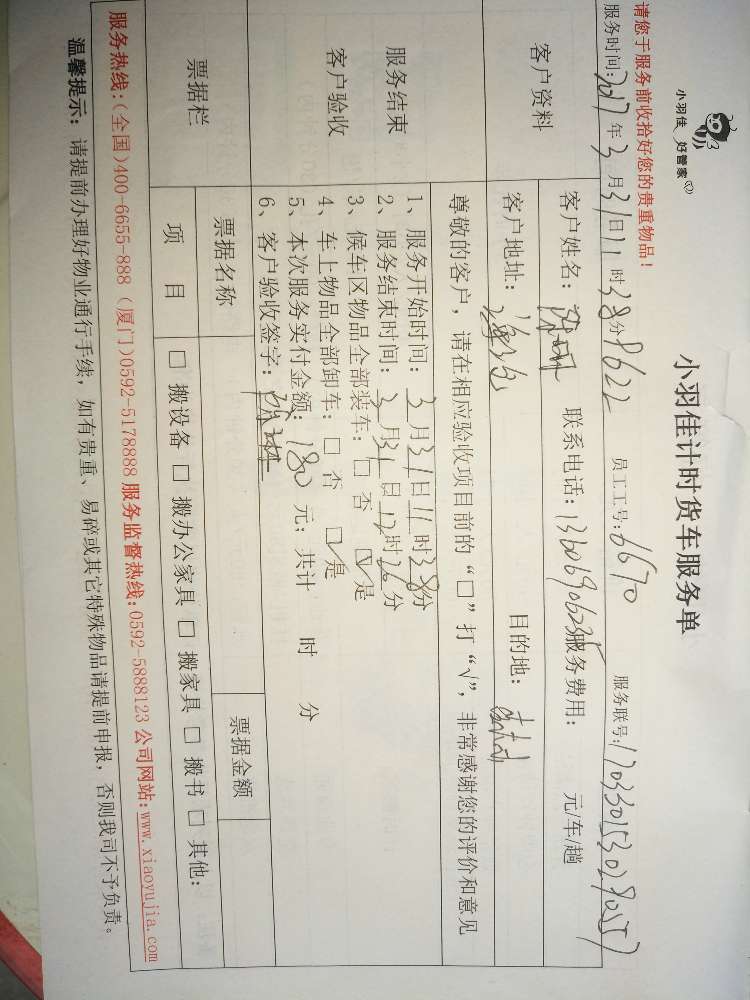 小羽佳 好管家
小羽佳计时货车服务单
请您于服务前收拾好您的贵重物品!
服务时间:2017年3月31日11时38分 员工工号:6670 服务联号:
客户资料
客户姓名: 联系电话: 服务费用: 元/车/趟
客户地址: 目的地:
尊敬的客户，请在相应验收项目前的“□”打“√”，非常感谢您的评价和意见
服务结束
客户验收
1、服务开始时间: 3月31日11时38分
2、服务结束时间: 3月31日12时26分
3、候车区物品全部装车: □ 否 ☑是
4、车上物品全部卸车: □ 否 ☑是
5、本次服务实付金额: 180 元; 共计 时 分
6、客户验收签字:
票据栏
票据名称 票据金额
项 目 □ 搬设备 □ 搬办公家具 □ 搬家具 □ 搬书 □ 其他:
服务热线:(全国)400-6655-888 (厦门)0592-5178888 服务监督热线:0592-5888123 公司网站:www.xiaoyujia.com
温馨提示: 请提前办理好物业通行手续，如有贵重、易碎或其它特殊物品请提前申报，否则我司不予负责。